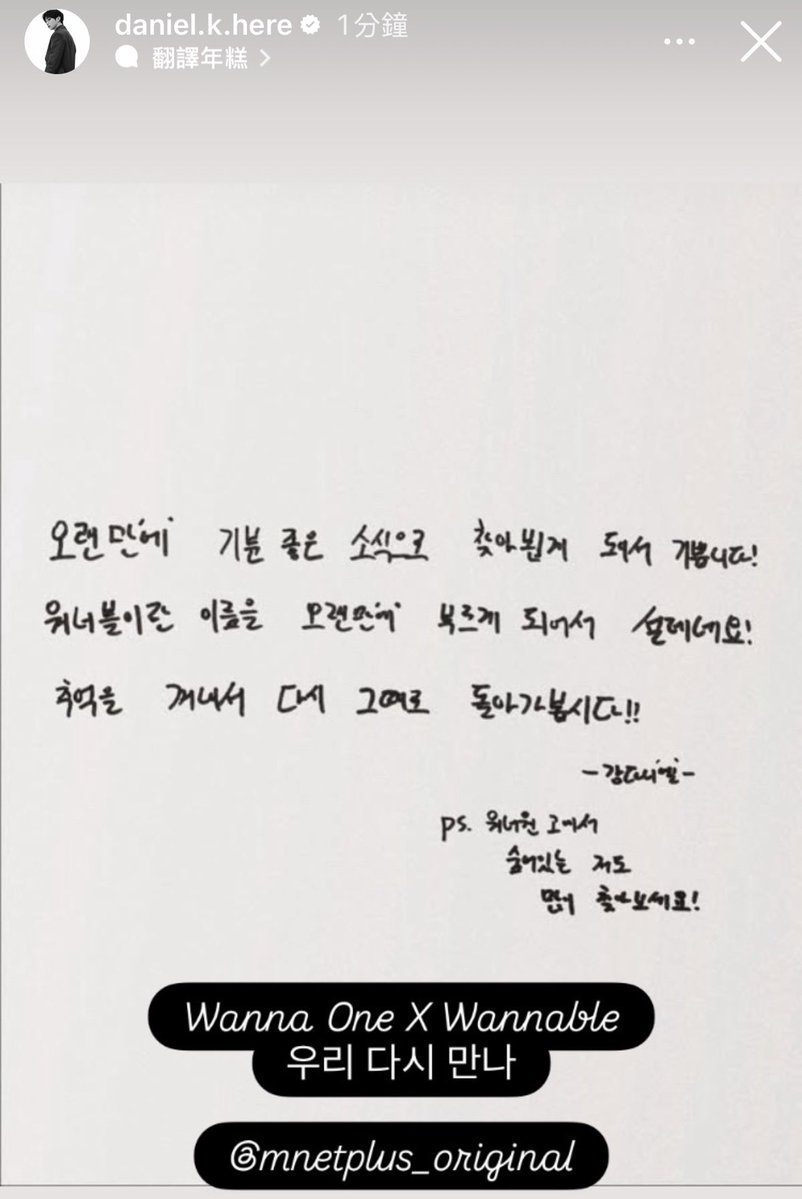 daniel.k.here 1分鐘
翻譯年糕 >
오랜만에 기분 좋은 소식으로 찾아뵙게 돼서 기쁩니다!
워너블이란 이름을 오랜만에 부르게 되어서 설레네요!
추억을 꺼내서 다시 그때로 돌아가봅시다!!
-강다니엘-
ps. 워너원 고에서
숨어있는 저도
많이 찾아보세요!
Wanna One X Wannable
우리 다시 만나
@mnetplus_original